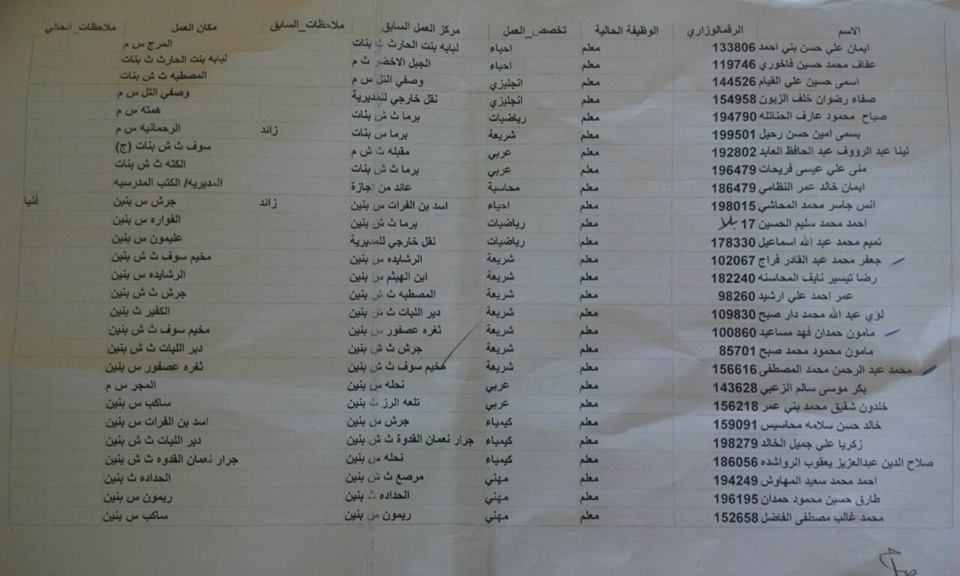 الاسم الرقم الوزاري الوظيفة الحالية تخصص_العمل مركز العمل السابق ملاحظات_السابق مكان العمل ملاحظات_الحالي
ايمان علي حسن بني احمد 133806 معلم احياء لبابه بنت الحارث ث بنات المرج س م
عفاف محمد حسين فاخوري 119746 معلم احياء الجبل الاخضر ث م لبابه بنت الحارث ث بنات
اسمى حسين علي القيام 144526 معلم انجليزي وصفي التل س م المصطبه ث ش بنات
صفاء رضوان خلف الزبون 154958 معلم انجليزي نقل خارجي للمديرية وصفي التل س م
صباح محمود عارف الحناتله 194790 معلم رياضيات برما ث ش بنات همته س م
بسمى امين حسن رحيل 199501 معلم شريعة برما س بنات زائد الرحمانيه س م
لينا عبد الرؤوف عبد الحافظ العابد 192802 معلم عربي مقبله ث ش م سوف ث ش بنات (ج)
منى علي عيسى فريحات 196479 معلم عربي برما ث ش بنات الكته ث ش بنات
ايمان خالد عمر النظامي 186479 معلم محاسبة عائد من اجازة المديريه/ الكتب المدرسيه
انس جاسر محمد المحاشي 198015 معلم احياء اسد بن الفرات س بنين زائد جرش س بنين
احمد محمد سليم الحسين 17 معلم رياضيات برما ث ش بنين الفواره س بنين
تميم محمد عبد الله اسماعيل 178330 معلم رياضيات نقل خارجي للمديرية عليمون س بنين
جعفر محمد عبد القادر فراج 102067 معلم شريعة الرشايده س بنين مخيم سوف ث ش بنين
رضا تيسير نايف المحاسنه 182240 معلم شريعة ابن الهيثم س بنين الرشايده س بنين
عمر احمد علي ارشيد 98260 معلم شريعة المصطبه ث ش بنين جرش ث ش بنين
لؤي عبد الله محمد دار صبح 109830 معلم شريعة دير الليات ث ش بنين الكفير ث بنين
مامون حمدان فهد مساعيد 100860 معلم شريعة ثغره عصفور س بنين مخيم سوف ث ش بنين
مامون محمود محمد صبح 85701 معلم شريعة جرش ث ش بنين دير الليات ث ش بنين
محمد عبد الرحمن محمد المصطفى 156616 معلم شريعة مخيم سوف ث ش بنين ثغره عصفور س بنين
بكر موسى سالم الزعبي 143628 معلم عربي نحله س بنين المجر س م
خلدون شفيق محمد بني عمر 156218 معلم عربي تلعه الرز ث بنين ساكب س بنين
خالد حسن سلامه محاسيس 159091 معلم كيمياء جرش س بنين اسد بن الفرات س بنين
زكريا علي جميل الخالد 198279 معلم كيمياء جرار نعمان القدوة ث ش بنين دير الليات ث ش بنين
صلاح الدين عبدالعزيز يعقوب الرواشده 186056 معلم كيمياء نحله س بنين جرار نعمان القدوه ث ش بنين
احمد محمد سعيد المهاوش 194249 معلم مهني مرصع ث ش بنين الحداده ث بنين
طارق حسين محمود حمدان 196195 معلم مهني الحداده ث بنين ريمون س بنين
محمد غالب مصطفى الفاضل 152658 معلم مهني ريمون س بنين ساكب س بنين